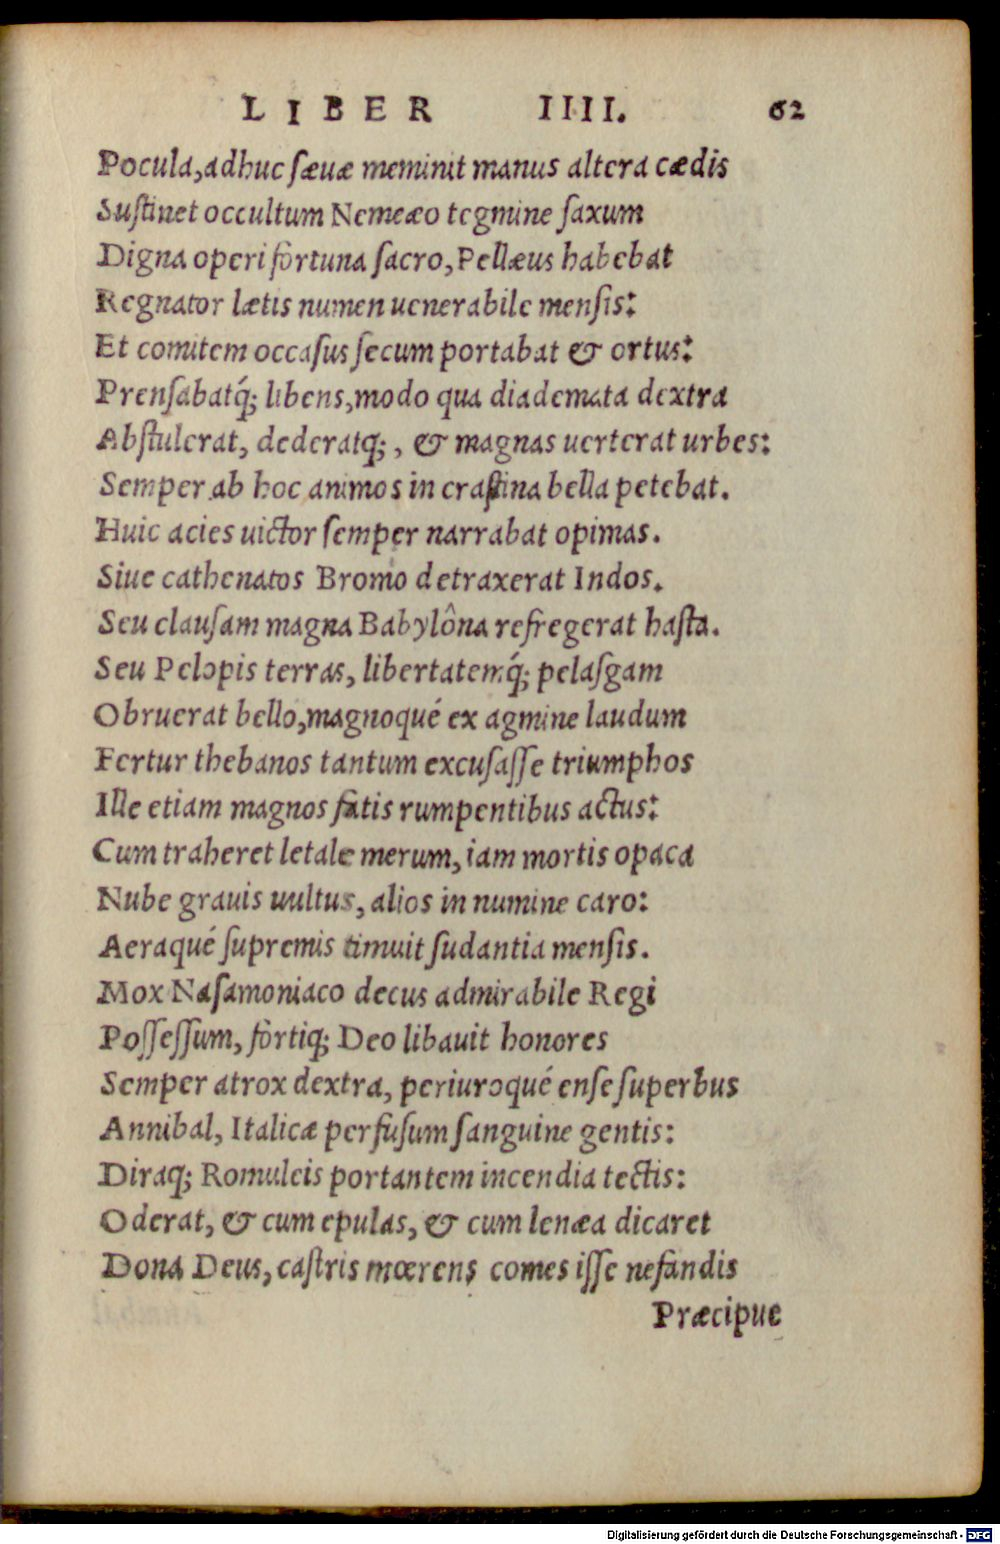 LIBER IIII. 62
Pocula,adhuc sæuæ meminit manus altera cædis
Sustinet occultum Nemeæo tegmine saxum
Digna operi fortuna sacro,Pellæus habebat
Regnator lætis numen uenerabile mensis:
Et comitem occasus secum portabat & ortus:
Prensabatq́; libens,modo qua diademata dextra
Abstulerat, dederatq;, & magnas uerterat urbes:
Semper ab hoc animos in crastina bella petebat.
Huic acies uictor semper narrabat opimas.
Siue cathenatos Bromo detraxerat Indos.
Seu clausam magna Babylôna refregerat hasta.
Seu Pelopis terras, libertatemq́; pelasgam
Obruerat bello,magnoqué ex agmine laudum
Fertur thebanos tantum excusasse triumphos
Ille etiam magnos fatis rumpentibus actus:
Cum traheret letale merum,iam mortis opaca
Nube grauis uultus, alios in numine caro:
Aeraqué supremis timuit sudantia mensis.
Mox Nasamoniaco decus admirabile Regi
Possessum, fortiq; Deo libauit honores
Semper atrox dextra, periuroqué ense superbus
Annibal, Italicæ perfusum sanguine gentis:
Diraq; Romuleis portantem incendia tectis:
Oderat, & cum epulas, & cum lenæa dicaret
Dona Deus, castris mœrens comes isse nefandis
Præcipue
Digitalisierung gefördert durch die Deutsche Forschungsgemeinschaft - DFG